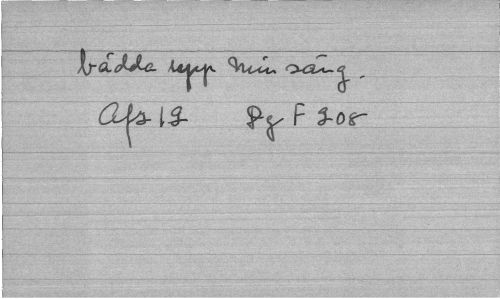 bädda upp min säng.
Afz 19 Pg F 208